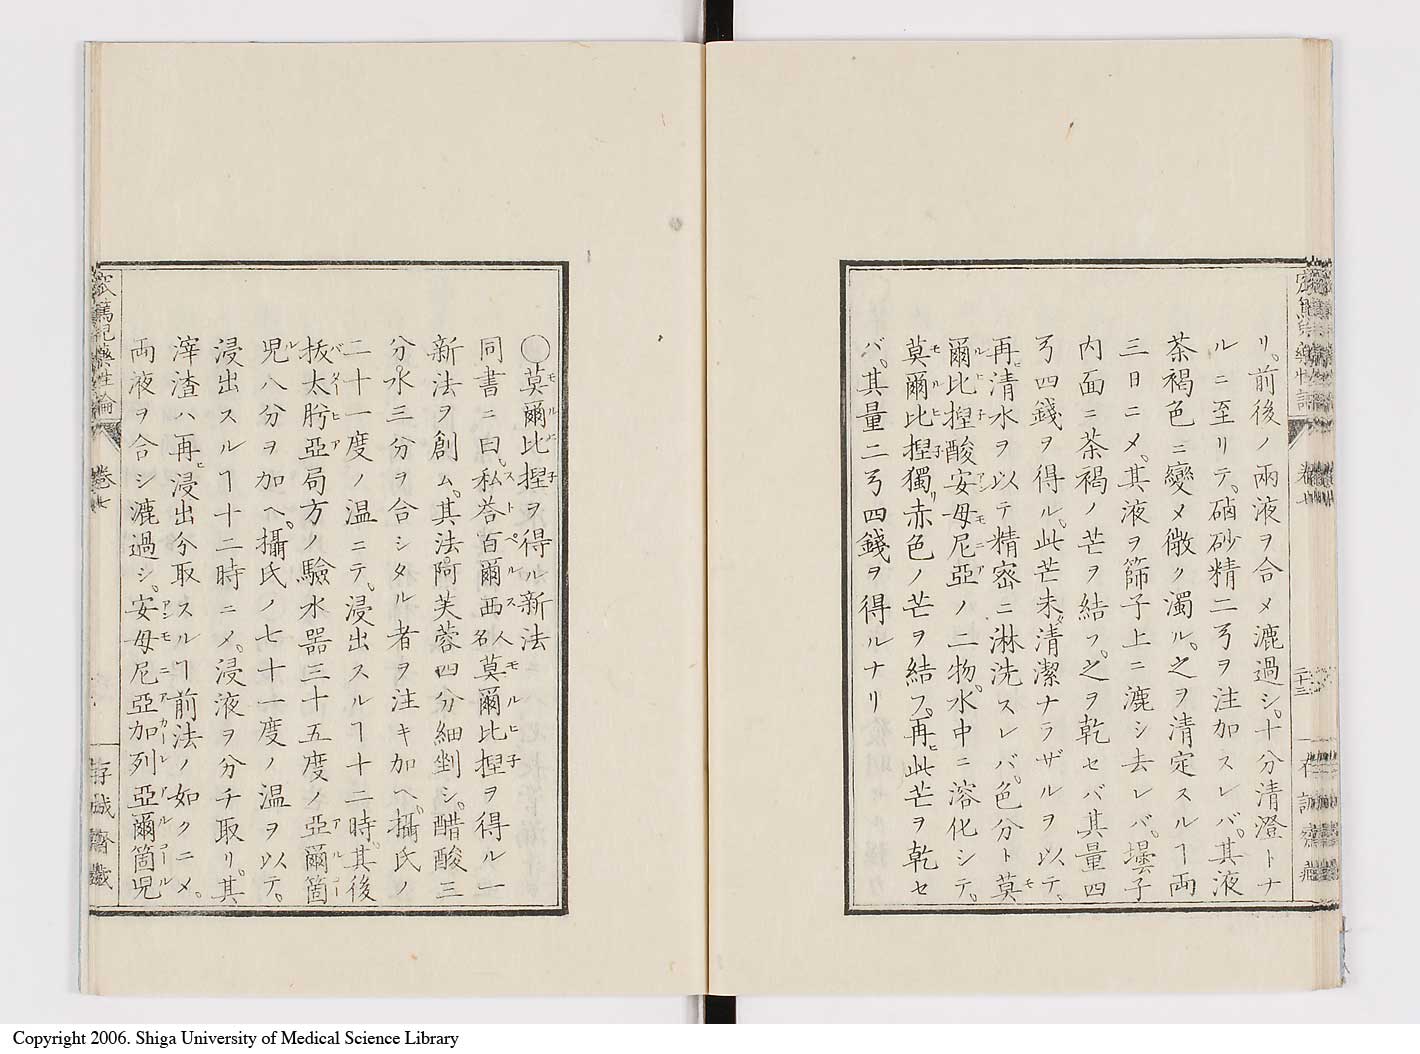 リ。前後ノ兩液ヲ合メ漉過シ。十分清澄トナ
ルニ至リテ。硇砂精二弓ヲ注加スレバ。其液
茶褐色ニ變メ微ク濁ル。之ヲ清定スルヿ両
三日ニメ。其液ヲ篩子上ニ漉シ去レバ。壜子
内面ニ茶褐ノ芒ヲ結フ。之ヲ乾セバ其量四
弓四錢ヲ得ル。此芒未清潔ナラザルヲ以テ。
再ヒ清水ヲ以テ精密ニ淋洗スレバ。色分ト莫
爾比捏酸安母尼亞ノ二物。水中ニ溶化シテ。
莫爾比捏獨リ赤色ノ芒ヲ結フ。再ヒ此芒ヲ乾セ
バ。其量二弓四錢ヲ得ルナリ
二十三
◯莫爾比捏ヲ得ル新法
同書ニ曰。私荅百爾西人名莫爾比捏ヲ得ル一
新法ヲ創ム。其法阿芙蓉四分細剉シ。醋酸三
分。水三分ヲ合シタル者ヲ注キ加ヘ。攝氏ノ
二十一度ノ温ニテ。浸出スルヿ十二時。其後
拔太肹亞局方ノ驗水器三十五度ノ亞爾箇
児八分ヲ加ヘ。攝氏ノ七十一度ノ温ヲ以テ。
浸出スルヿ十二時ニメ。浸液ヲ分チ取リ。其
滓渣ハ再ヒ浸出分取スルヿ前法ノ如クニメ。
両液ヲ合シ漉過シ。安母尼亞加列亞爾箇児
篤児藥性論
卷七
存誠齋藏
Copyright 2006. Shiga University of Medical Science Library